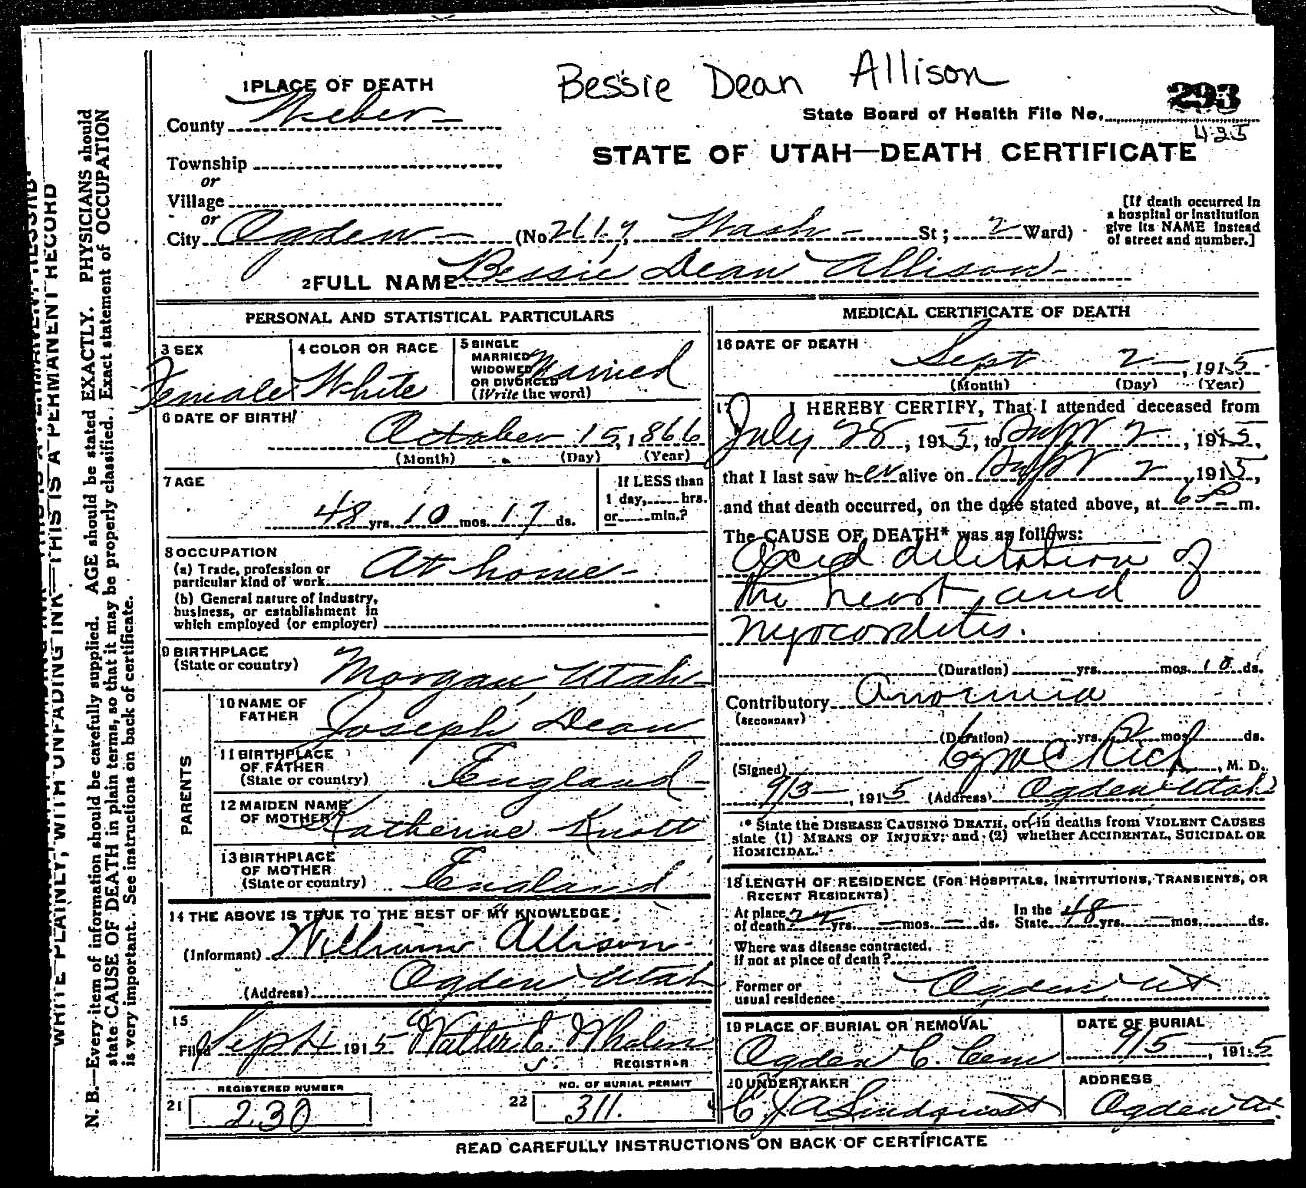 Bessie Dean Allison
1 PLACE OF DEATH
County Weber
State Board of Health File No. 293
425
STATE OF UTAH—DEATH CERTIFICATE
Township
or
Village
or
City Ogden (No 2117 Wash St; 2 Ward)
[If death occurred in
a hospital or institution
give its NAME instead
of street and number.]
2 FULL NAME Bessie Dean Allison
PERSONAL AND STATISTICAL PARTICULARS
3 SEX Female
4 COLOR OR RACE White
5 SINGLE
MARRIED
WIDOWED
OR DIVORCED
(Write the word) Married
6 DATE OF BIRTH October 15, 1866
(Month) (Day) (Year)
7 AGE
48 yrs. 10 mos. 17 ds.
If LESS than
1 day, hrs.
or min.?
8 OCCUPATION
(a) Trade, profession or
particular kind of work At home
(b) General nature of industry,
business, or establishment in
which employed (or employer)
9 BIRTHPLACE
(State or country) Morgan Utah
PARENTS
10 NAME OF
FATHER Joseph Dean
11 BIRTHPLACE
OF FATHER
(State or country) England
12 MAIDEN NAME
OF MOTHER Katherine Knott
13 BIRTHPLACE
OF MOTHER
(State or country) England
14 THE ABOVE IS TRUE TO THE BEST OF MY KNOWLEDGE
(Informant) William Allison
(Address) Ogden Utah
15
Filed Sept 4 1915 Walter E. Whalen
S. REGISTRAR
REGISTERED NUMBER
21 230
NO. OF BURIAL PERMIT
22 311.
MEDICAL CERTIFICATE OF DEATH
16 DATE OF DEATH
Sept 2, 1915
(Month) (Day) (Year)
17 I HEREBY CERTIFY, That I attended deceased from
July 28, 1915, to Sept 2, 1915,
that I last saw her alive on Sept 2, 1915,
and that death occurred, on the date stated above, at 6 P m.
The CAUSE OF DEATH* was as follows:
Acid diletation of
the heart and
myocorditis.
(Duration) yrs. mos. 10 ds.
Contributory
(SECONDARY)
(Duration) yrs. 2 mos. ds.
(Signed) Rich, M. D.
9/3, 1915 (Address) Ogden Utah
* State the DISEASE CAUSING DEATH, or in deaths from VIOLENT CAUSES
state (1) MEANS OF INJURY; and (2) whether ACCIDENTAL, SUICIDAL OR
HOMICIDAL.
18 LENGTH OF RESIDENCE (FOR HOSPITALS, INSTITUTIONS, TRANSIENTS, OR
RECENT RESIDENTS)
At place
of death yrs. mos. ds.
In the
State 48 yrs. mos. ds.
Where was disease contracted,
if not at place of death?
Former or
usual residence Ogden Ut
19 PLACE OF BURIAL OR REMOVAL
Ogden C. Cem
DATE OF BURIAL
9/5, 1915
20 UNDERTAKER
C J A Lindquist
ADDRESS
Ogden Ut.
READ CAREFULLY INSTRUCTIONS ON BACK OF CERTIFICATE
WRITE PLAINLY, WITH UNFADING INK—THIS IS A PERMANENT RECORD
N. B.—Every item of information should be carefully supplied. AGE should be stated EXACTLY. PHYSICIANS should
state CAUSE OF DEATH in plain terms, so that it may be properly classified. Exact statement of OCCUPATION
is very important. See instructions on back of certificate.